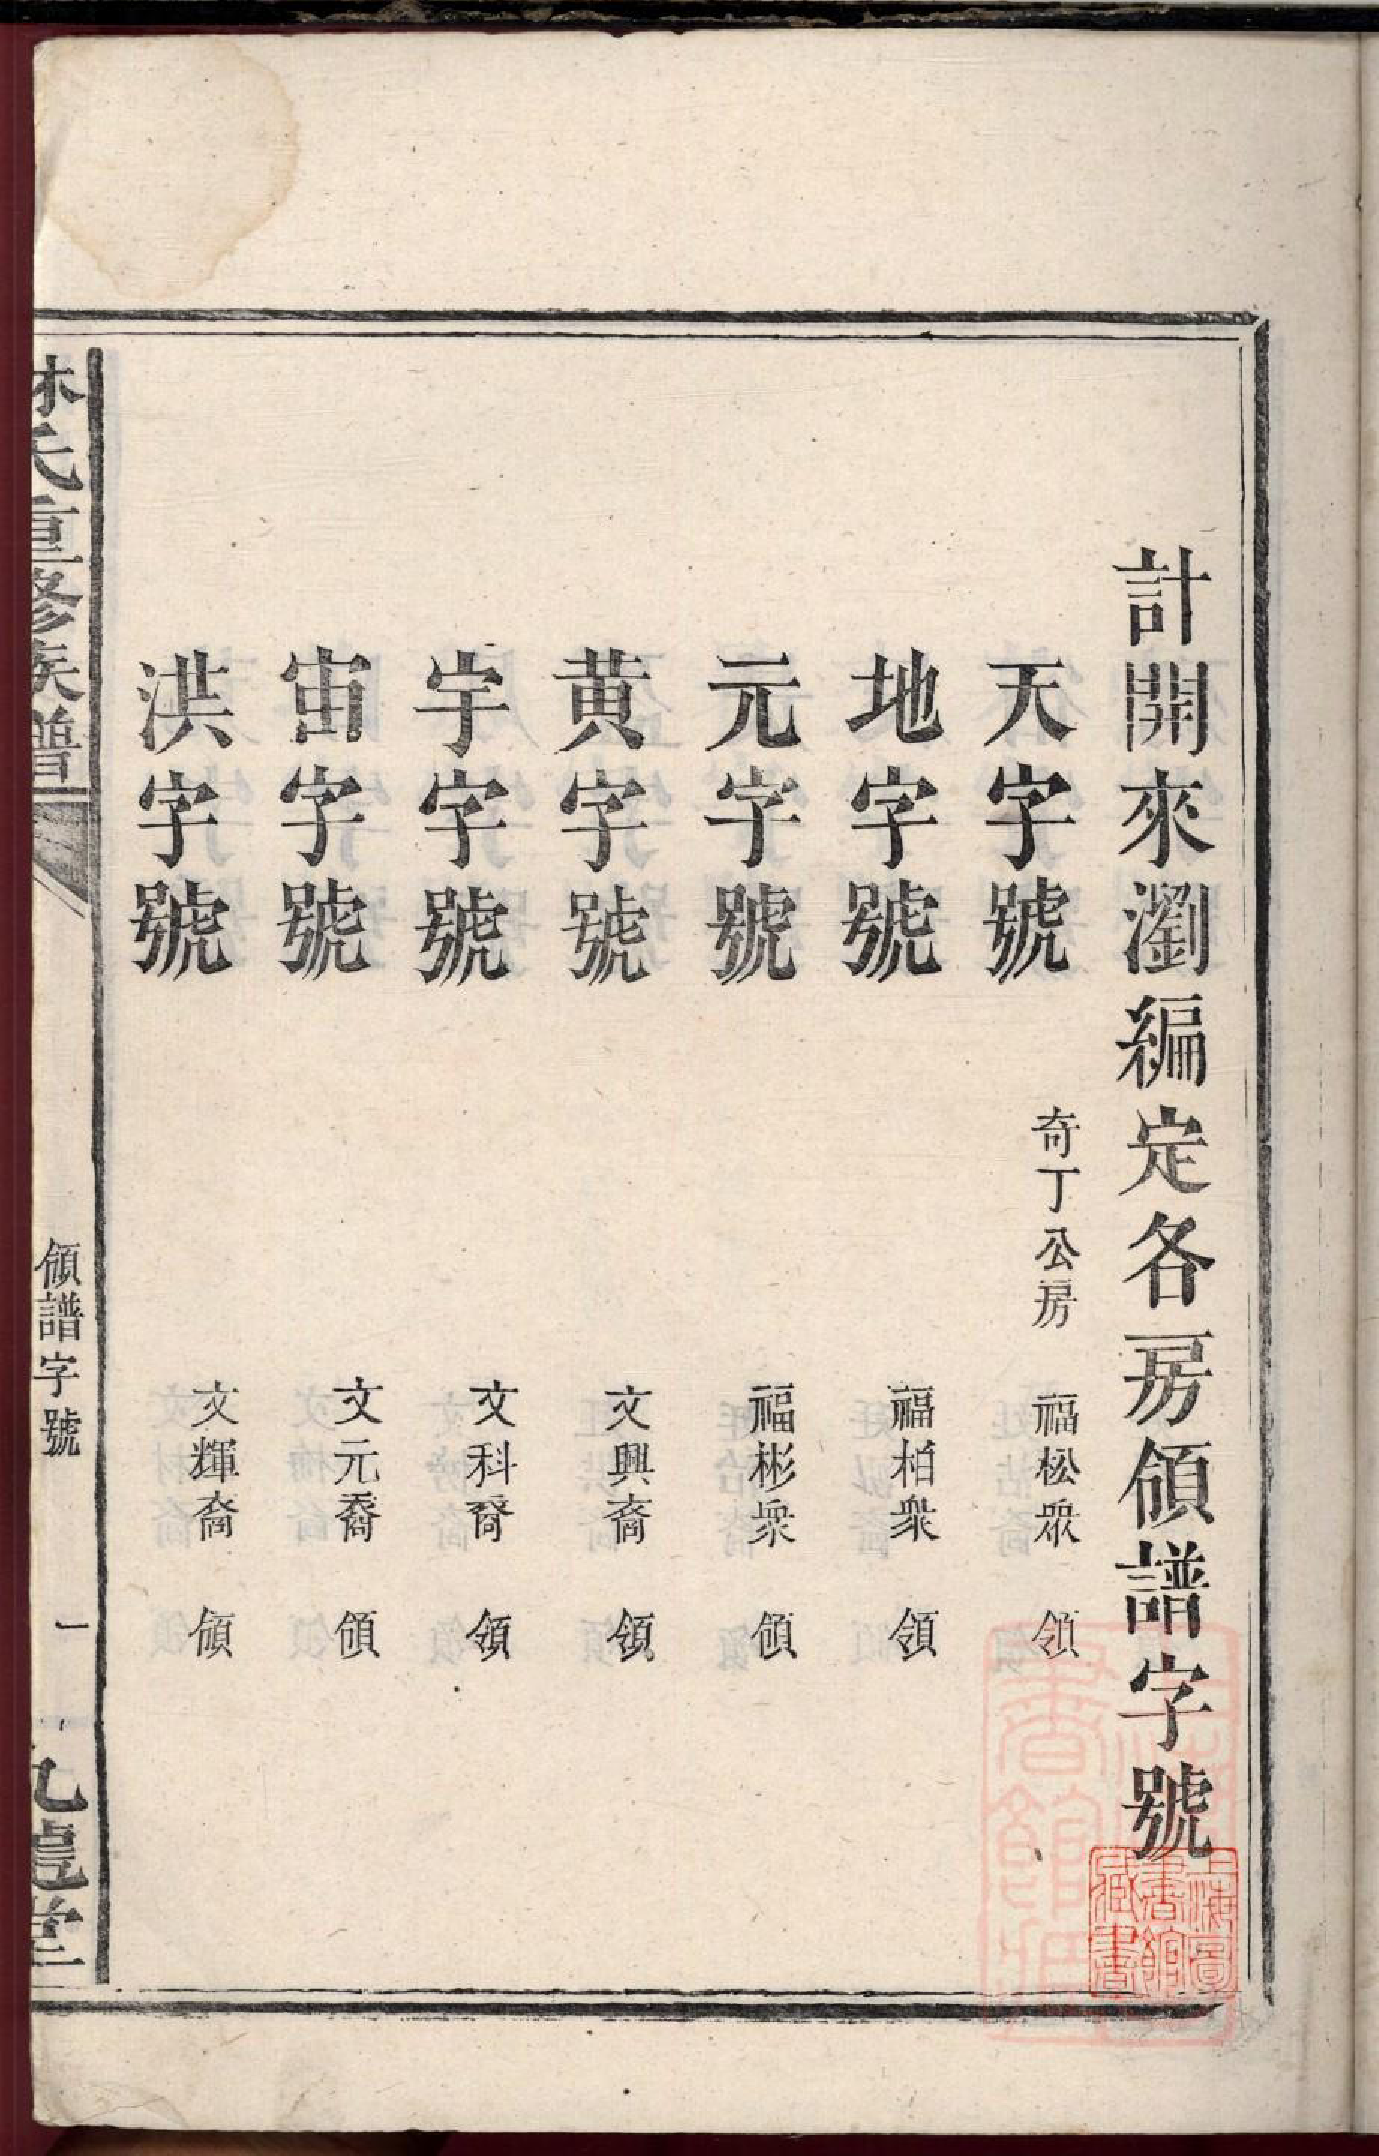 計開來瀏編定各房領譜字號
天字號 奇丁公房 福松眾 領
地字號 福柏衆 領
元字號 福彬衆 領
黄字號 文興裔 領
宇字號 文科裔 領
宙字號 文元裔 領
洪字號 文輝裔 領
林氏重修族譜 領譜字號 一 九龍堂
上海圖書館藏書